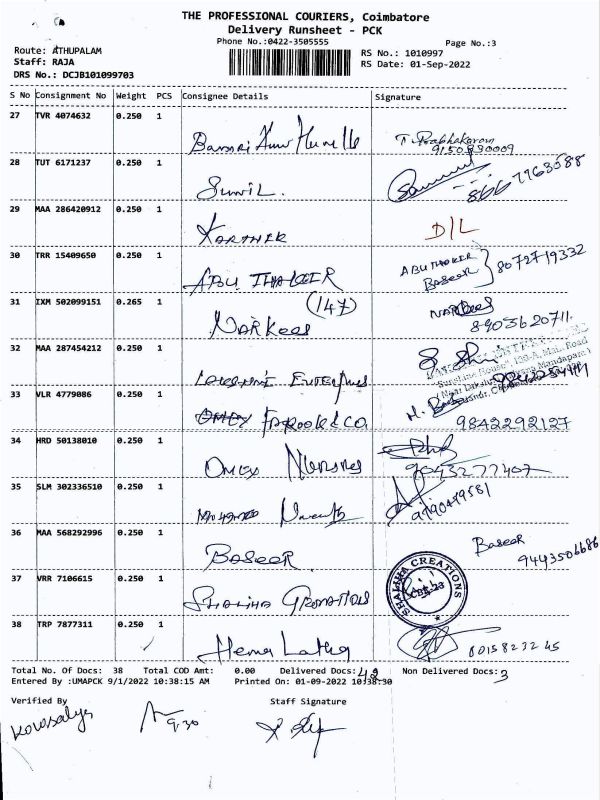 THE PROFESSIONAL COURIERS, Coimbatore
Delivery Runsheet - PCK
Phone No.:0422-3505555 Page No.:3
Route: ATHUPALAM RS No.: 1010997
Staff: RAJA RS Date: 01-Sep-2022
DRS No.: DCJB101099703
S No Consignment No Weight PCS Consignee Details Signature
27 TVR 4074632 0.250 1
T. Prabhakaran
9150830009
28 TUT 6171237 0.250 1
Sunil. 8667763588
29 MAA 286420912 0.250 1
KARTHIK D/L
30 TRR 15409650 0.250 1
ABU THAKEER ABUTHAKER
Baseer 8072719332
31 IXM 502099151 0.265 1
(147)
Narkees Narkees
8903620711.
32 MAA 287454212 0.250 1
33 VLR 4779086 0.250 1
Farook & Co 9842292127
34 HRD 50138010 0.250 1
Omex 9043277407
35 SLM 302336510 0.250 1
Mohamed 9790499581
36 MAA 568292996 0.250 1
Baseer Baseer
9443506686
37 VRR 7106615 0.250 1
Shaliha Creations SHALIHA CREATIONS
38 TRP 7877311 0.250 1
Hema Latha 8015823245
Total No. Of Docs: 38 Total COD Amt: 0.00 Delivered Docs: Non Delivered Docs: 3
Entered By :UMAPCK 9/1/2022 10:38:15 AM Printed On: 01-09-2022 10:38:30
Verified By Staff Signature
Kowsalya 9.30